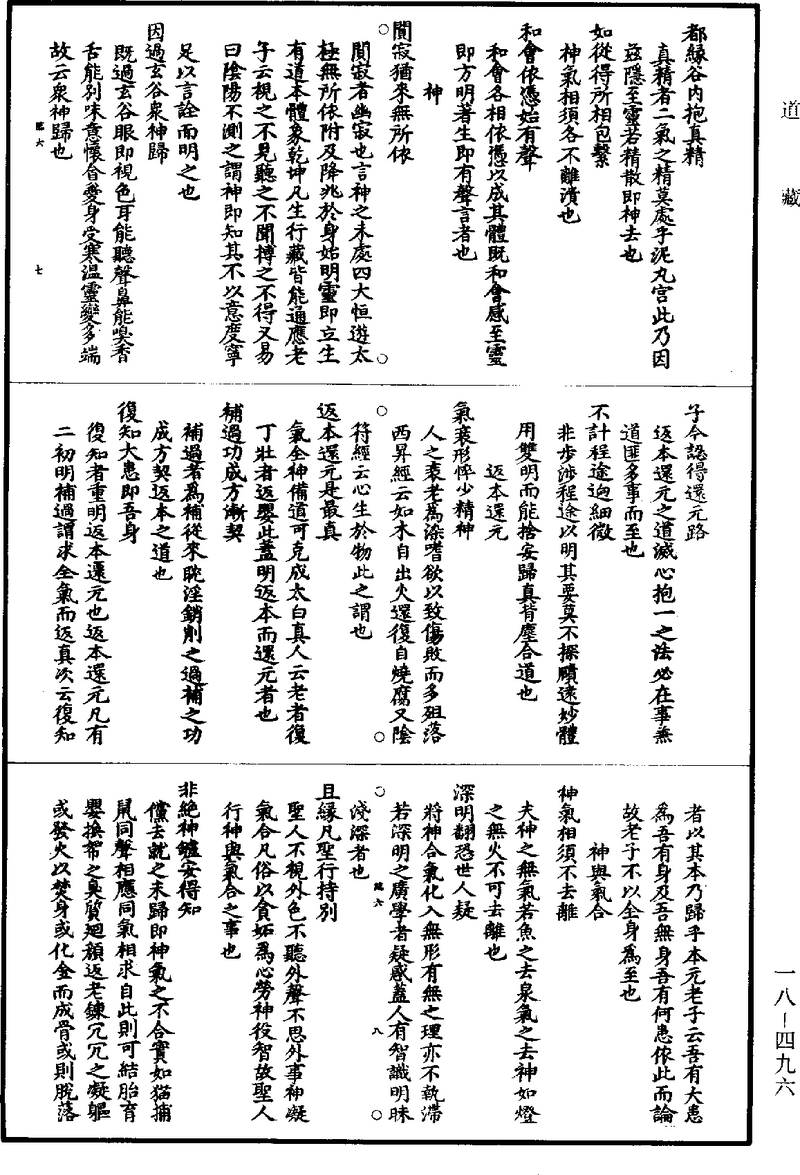 道藏
都緣谷內抱真精
真精者二氣之精莫處乎泥丸宮此乃因
茲隱至靈若精散即神去也
如從得所相包繫
神氣相須各不離潰也
和會依憑始有聲
和會各相依憑以成其體既和會感至靈
即方明著生即有聲言者也
神
閴寂猶來無所依
閴寂者幽寂也言神之未處四大恒遊太
極無所依附及降兆於身始明靈即立生
有道本體象乾坤凡生行藏皆能通應老
子云視之不見聽之不聞搏之不得又易
曰陰陽不測之謂神即知其不以意度寧
足以言詮而明之也
因過玄谷衆神歸
既過玄谷眼即視色耳能聽聲鼻能嗅香
舌能別味意懷會愛身受寒溫靈變多端
故云衆神歸也
臨六
七
子今認得還元路
返本還元之道滅心抱一之法必在事無
道匪多事而至也
不計程途迨細微
非步涉程途以明其要莫不探賾遠妙體
用雙明而能捨妄歸真背塵合道也
返本還元
氣衰形悴少精神
人之衰老爲染嗜欲以致傷敗而多殂落
西昇經云如木自出火還復自燒腐又陰
符經云心生於物此之謂也
返本還元是最真
氣全神備道可克成太白真人云老者復
丁壯者返嬰此蓋明返本而還元者也
補過功成方漸契
補過者爲補從來眈淫銷削之過補之功
成方契返本之道也
復知大患即吾身
復知者重明返本還元也返本還元凡有
二初明補過謂求全氣而返真次云復知
者以其本乃歸乎本元老子云吾有大患
爲吾有身及吾無身吾有何患依此而論
故老子不以全身爲至也
神與氣合
神氣相須不去離
夫神之無氣若魚之去泉氣之去神如燈
之無火不可去離也
深明翻恐世人疑
將神合氣化入無形有無之理亦不執滯
若深明之廣學者疑惑蓋人有智識明昧
淺深者也
臨六
八
且緣凡聖行持別
聖人不視外色不聽外聲不思外事神凝
氣合凡俗以貪妬爲心勞神役智故聖人
行神與氣合之事也
非絶神鑪安得知
儻去就之未歸即神氣之不合實如猫捕
鼠同聲相應同氣相求自此則可結胎育
嬰換帶之臭質廻顏返老鍊冗冗之凝軀
或發火以焚身或化金而成骨或則脫落
一八—四九六